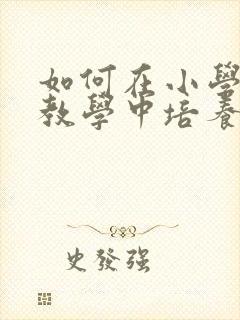 如何在小學
教學中培養
史發強